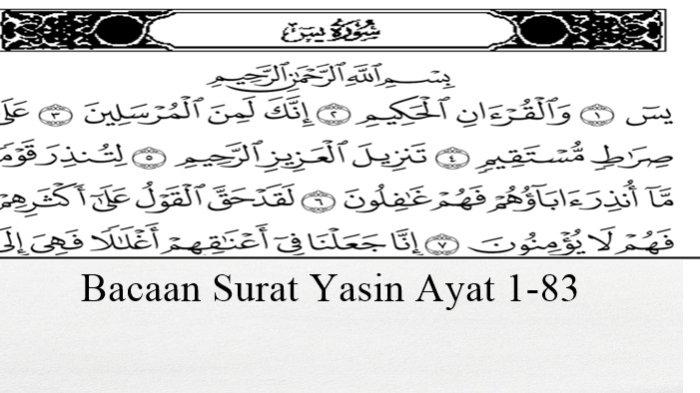 سُورَةُ يسٓ
بِسْمِ اللَّهِ الرَّحْمَٰنِ الرَّحِيمِ
يسٓ ١ وَالْقُرْءَانِ الْحَكِيمِ ٢ إِنَّكَ لَمِنَ الْمُرْسَلِينَ ٣ عَلَى
صِرَاطٍ مُّسْتَقِيمٍ ٤ تَنزِيلَ الْعَزِيزِ الرَّحِيمِ ٥ لِتُنذِرَ قَوْمًا
مَّآ أُنذِرَ ءَابَآؤُهُمْ فَهُمْ غَٰفِلُونَ ٦ لَقَدْ حَقَّ الْقَوْلُ عَلَىٰٓ أَكْثَرِهِمْ
فَهُمْ لَا يُؤْمِنُونَ ٧ إِنَّا جَعَلْنَا فِىٓ أَعْنَٰقِهِمْ أَغْلَٰلًا فَهِىَ إِلَى
Bacaan Surat Yasin Ayat 1-83